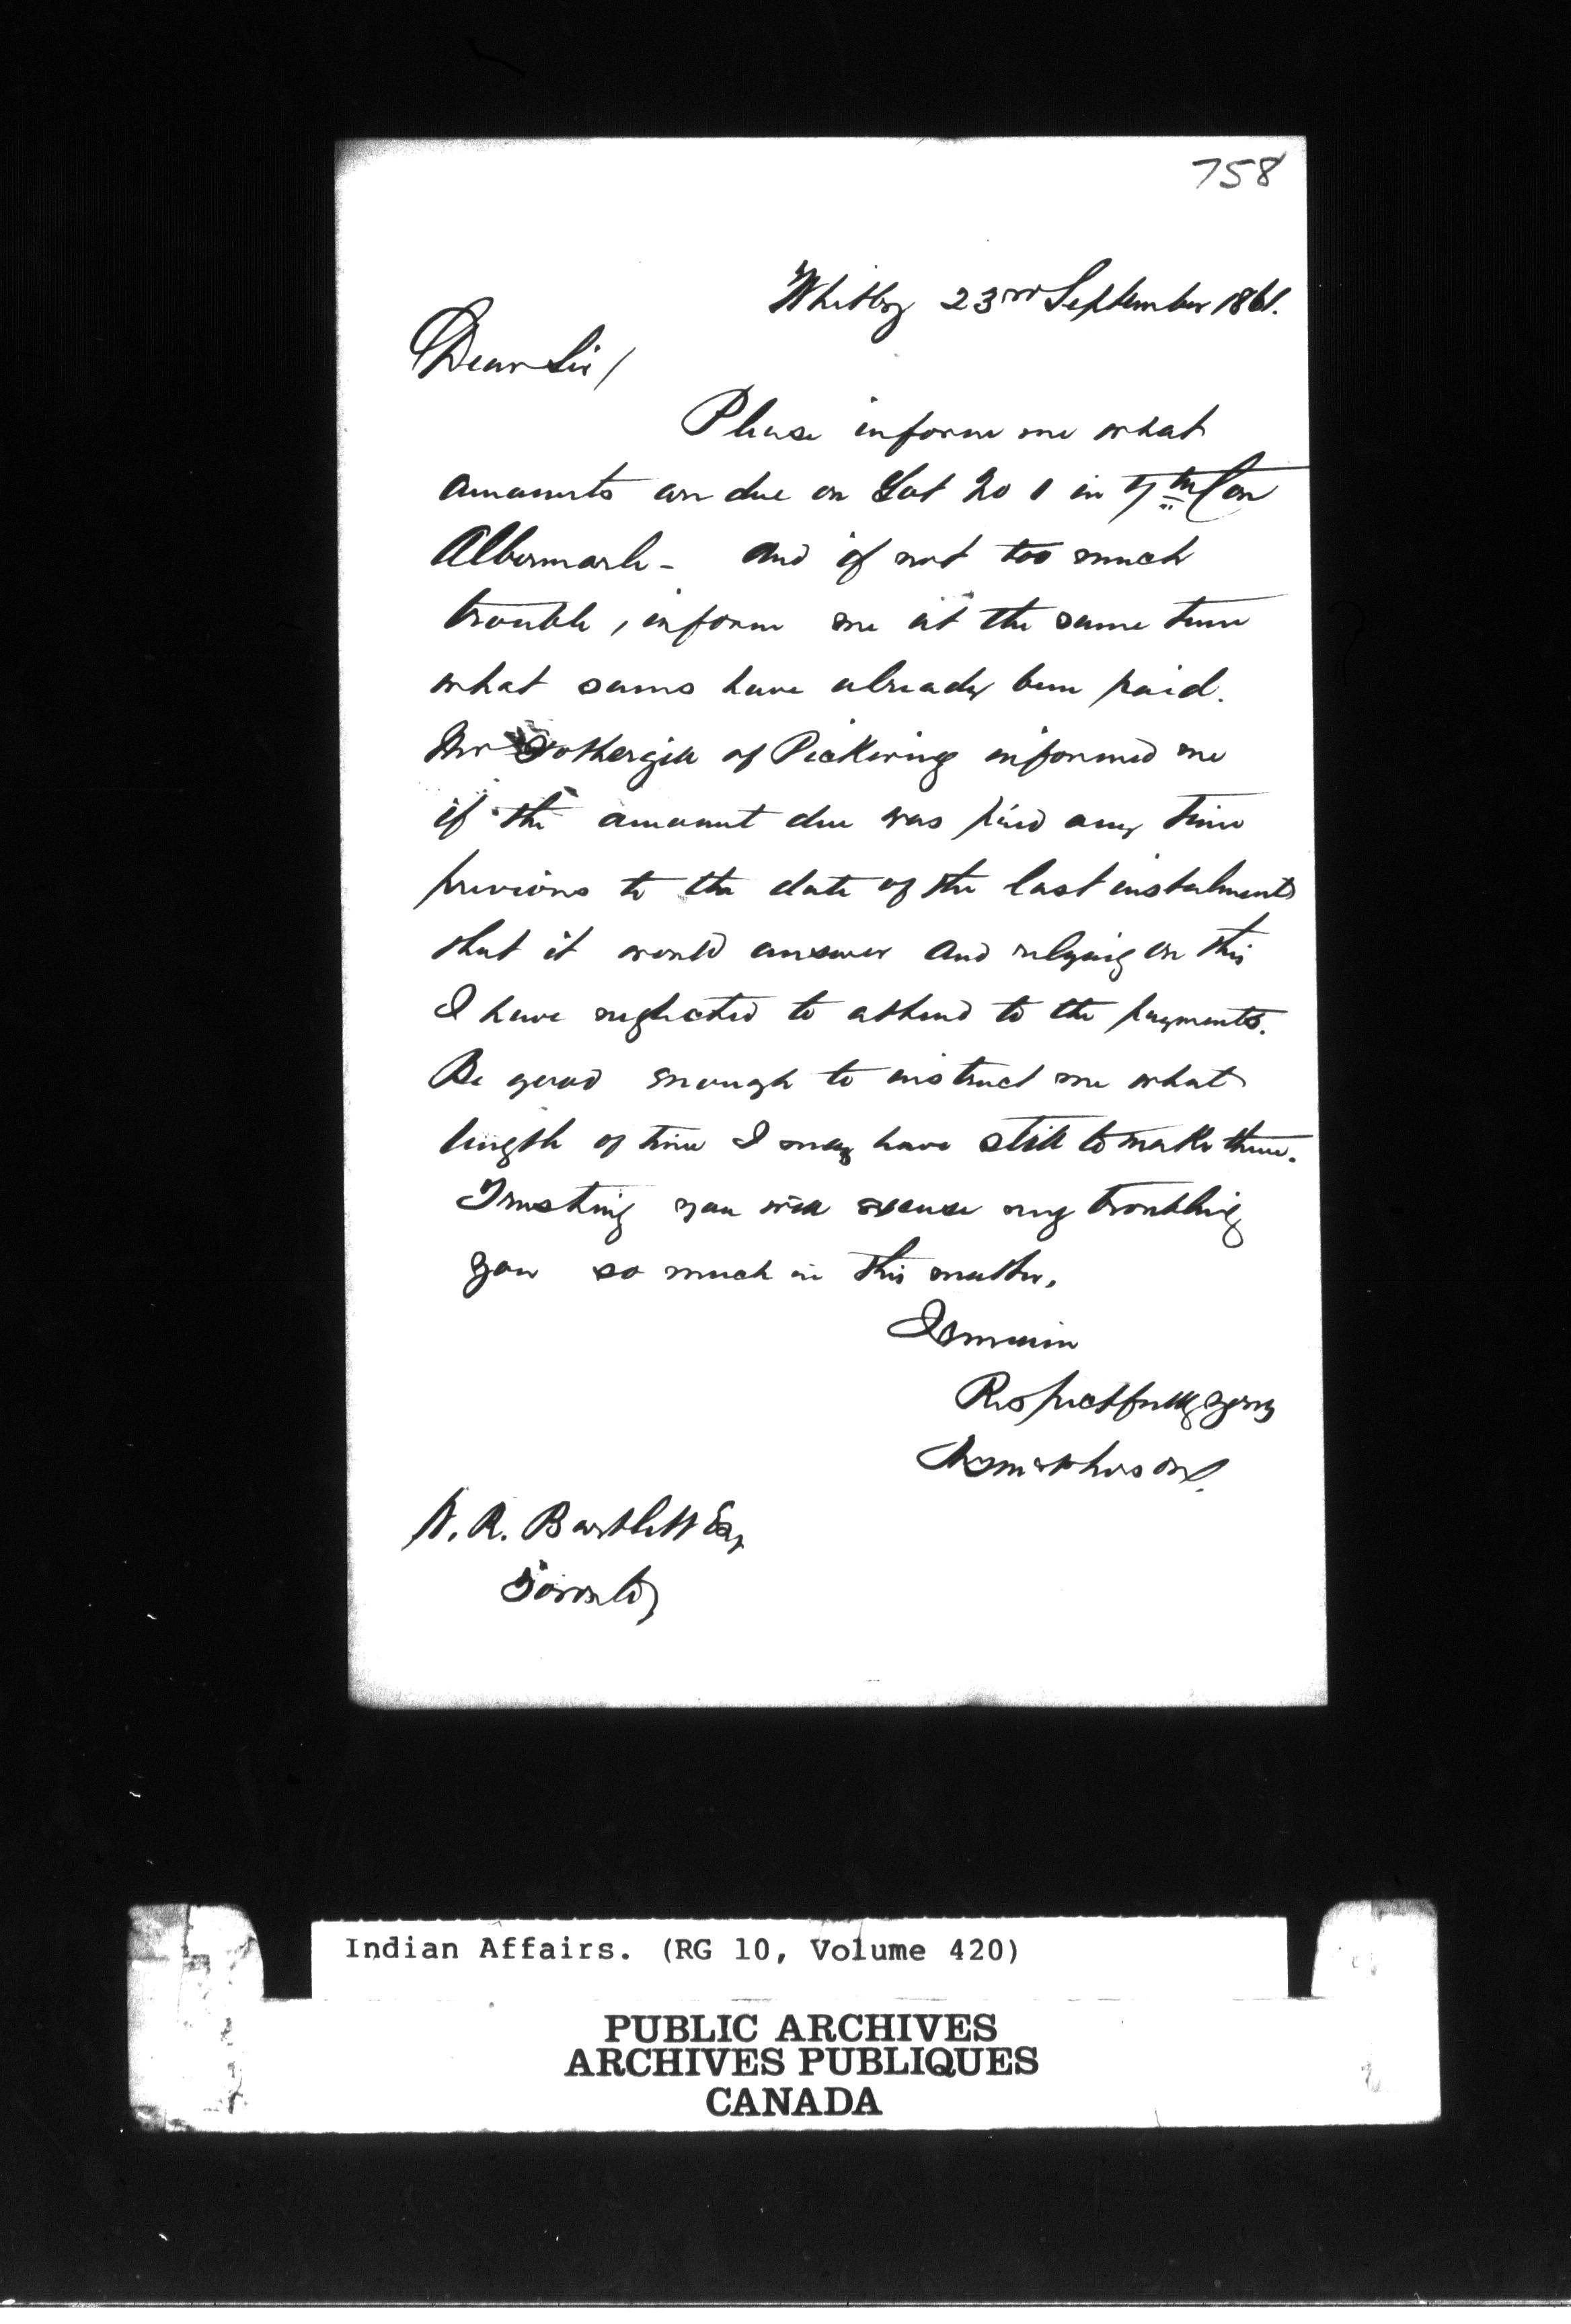 758
Whitby 23rd September 1861.
Dear Sir/
Please inform me what
amounts are due on Lot No 1 in 7th Con
Albermarle - and if not too much
trouble, inform me at the same time
what sums have already been paid.
Mr Fothergill of Pickering informed me
if the amount due was paid any time
previous to the date of the last instalments
that it would answer and relying on this
I have neglected to attend to the payments.
Be good enough to instruct me what
length of time I may have still to make them.
Trusting you will excuse my troubling
you so much in this matter.
I remain
Respectfully yours
W. R. Bartlett Esq
Toronto
Indian Affairs. (RG 10, Volume 420)
PUBLIC ARCHIVES
ARCHIVES PUBLIQUES
CANADA